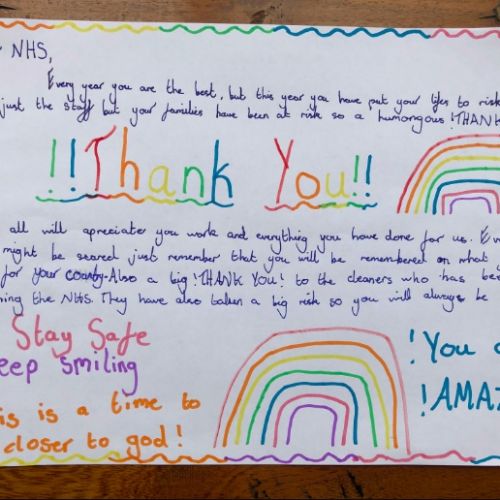 NHS,
Every year you are the best, but this year you have put your lifes to risk
just the staff but your families have been at risk so a humongous !THANK
!!Thank You!!
all will apreciate you work and everything you have done for us. Ev
might be scared just remember that you will be remembered on what y
for your county. Also a big !THANK YOU! to the cleaners who has bee
ning the NHS. They have also taken a big risk so you will always be
Stay Safe
eep smiling
is is a time to
closer to god!
!You a
!AMAZ